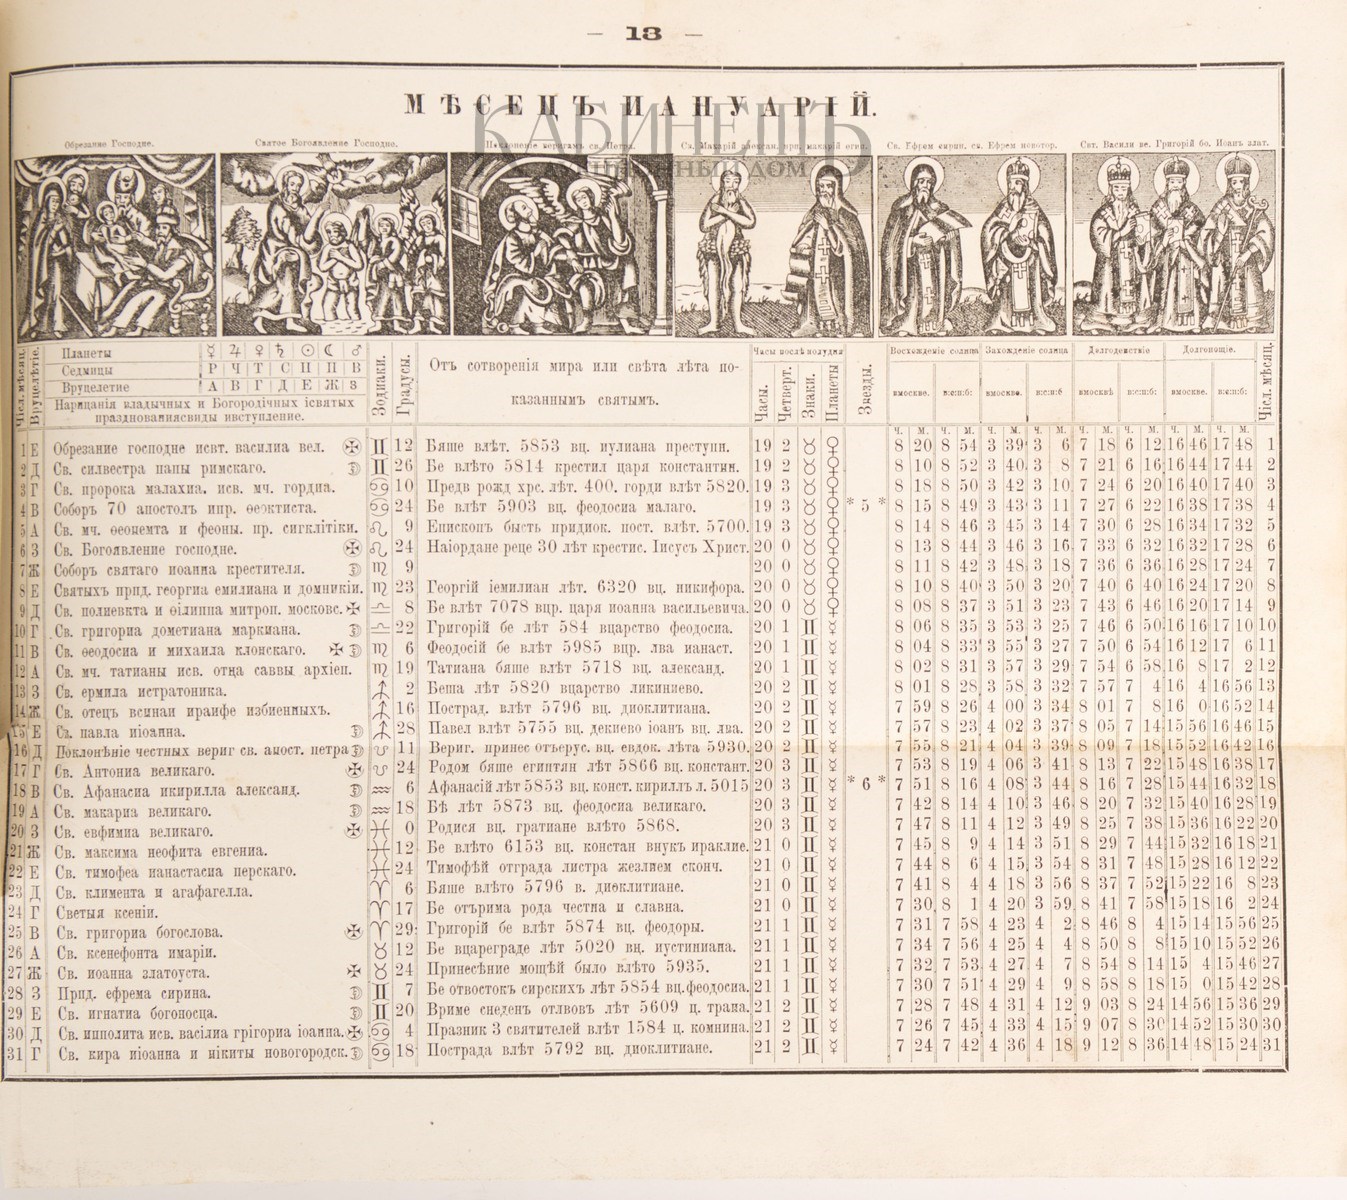 — 13 —
МѢСЕЦЪ ИАНУАРІЙ.
КАБИНЕТЪ
аукционный дом
Обрезание Господне. Святое Богоявление Господне. Поклонение веригамъ св. Петра. Св. Макарий алексан. прп. макарий егип. Св. Ефрем сирин. св. Ефрем новотор. Свт. Васили ве. Григорій бо. Иоанъ злат.
Чісл. мѣсяц. Вруцелѣтіе. Планеты ☿ ♃ ♀ ♄ ☉ ☾ ♂
Седмицы Р Ч Т С П П В
Вруцелетие А В Г Д Е Ж З
Нарицанія владычных и Богородічных ісвятых
празднованиясвиды ивступление.
Зодиаки. Градусы.
Отъ сотворенія мира или свѣта лѣта по-
казаннымъ святымъ.
Часы послѣ полудня
Часы. Четверт. Знаки. Планеты Звезды.
Восхожденіе солнца Захожденіе солница Долгоденствіе Долгонощіе. Чісл. мѣсяц.
вмоскве. в:с:п:б: вмоскве. в:с:п:б вмосквѣ в:с:п:б: вмоскве. в:с:п:б:
ч. м. ч. м. ч. м. ч. м. ч. м. ч. м. ч. м. ч. м.
1 Е Обрезание господне исвт. василиа вел. ♊ 12 Бяше влѣт. 5853 вц. иулиана преступн. 19 2 ♉ ♀ 8 20 8 54 3 39 3 6 7 18 6 12 16 46 17 48 1
2 Д Св. силвестра папы римскаго. ♊ 26 Бе влѣто 5814 крестил царя константин. 19 2 ♉ ♀ 8 10 8 52 3 40 3 8 7 21 6 16 16 44 17 44 2
3 Г Св. пророка малахиа. исв. мч. гордиа. ♋ 10 Предв рожд хрс. лѣт. 400. горди влѣт 5820. 19 3 ♉ ♀ 8 18 8 50 3 42 3 10 7 24 6 20 16 40 17 40 3
4 В Соборъ 70 апостолъ ипр. ѳеоктиста. ♋ 24 Бе влѣт 5903 вц. феодосиа малаго. 19 3 ♉ ♀ * 5 * 8 15 8 49 3 43 3 11 7 27 6 22 16 38 17 38 4
5 А Св. мч. ѳеопемта и феоны. пр. сигклітіки. ♌ 9 Епископъ бысть придиок. пост. влѣт. 5700. 19 3 ♉ ♀ 8 14 8 46 3 45 3 14 7 30 6 28 16 34 17 32 5
6 З Св. Богоявление господне. ♌ 24 Наіордане реце 30 лѣт крестис. Іисусъ Христ. 20 0 ♉ ♀ 8 13 8 44 3 46 3 16 7 33 6 32 16 32 17 28 6
7 Ж Соборъ святаго иоанна крестителя. ♍ 9 20 0 ♉ ♀ 8 11 8 42 3 48 3 18 7 36 6 36 16 28 17 24 7
8 Е Святыхъ прпд. георгиа емилиана и домникіи. ♍ 23 Георгій іемилиан лѣт. 6320 вц. никифора. 20 0 ♉ ♀ 8 10 8 40 3 50 3 20 7 40 6 40 16 24 17 20 8
9 Д Св. полиевкта и ѳілиппа митроп. московс. ♎ 8 Бе влѣт 7078 вцр. царя иоанна васильевича. 20 0 ♉ ♀ 8 08 8 37 3 51 3 23 7 43 6 46 16 20 17 14 9
10 Г Св. григориа дометиана маркиана. ♎ 22 Григорій бе лѣт 584 вцарство феодосиа. 20 1 ♊ ☿ 8 06 8 35 3 53 3 25 7 46 6 50 16 16 17 10 10
11 В Св. ѳеодосиа и михаила клонскаго. ♍ 6 Феодосій бе влѣт 5985 вцр. лва ианаст. 20 1 ♊ ☿ 8 04 8 33 3 55 3 27 7 50 6 54 16 12 17 6 11
12 А Св. мч. татианы исв. отца саввы архіеп. ♍ 19 Татиана бяше влѣт 5718 вц. александ. 20 1 ♊ ☿ 8 02 8 31 3 57 3 29 7 54 6 58 16 8 17 2 12
13 З Св. ермила истратоника. ♐ 2 Беша лѣт 5820 вцарство ликиниево. 20 2 ♊ ☿ 8 01 8 28 3 58 3 32 7 57 7 4 16 4 16 56 13
14 Ж Св. отецъ всинаи ираифе избиенныхъ. ♐ 16 Пострад. влѣт 5796 вц. диоклитиана. 20 2 ♊ ☿ 7 59 8 26 4 00 3 34 8 01 7 8 16 0 16 52 14
15 Е Св. павла иіоанна. ♐ 28 Павел влѣт 5755 вц. декиево іоанъ вц. лва. 20 2 ♊ ☿ 7 57 8 23 4 02 3 37 8 05 7 14 15 56 16 46 15
16 Д Поклонѣніе честных вериг св. апост. петра ♑ 11 Вериг. принес отъерус. вц. евдок. лѣта 5930. 20 2 ♊ ☿ 7 55 8 21 4 04 3 39 8 09 7 18 15 52 16 42 16
17 Г Св. Антониа великаго. ♑ 24 Родом бяше египтян лѣт 5866 вц. констант. 20 3 ♊ ☿ 7 53 8 19 4 06 3 41 8 13 7 22 15 48 16 38 17
18 В Св. Афанасиа икирилла александ. ♒ 6 Афанасій лѣт 5853 вц. конст. кириллъ л. 5015 20 3 ♊ ☿ * 6 * 7 51 8 16 4 08 3 44 8 16 7 28 15 44 16 32 18
19 А Св. макариа великаго. ♒ 18 Бѣ лѣт 5873 вц. феодосиа великаго. 20 3 ♊ ☿ 7 42 8 14 4 10 3 46 8 20 7 32 15 40 16 28 19
20 З Св. евфимиа великаго. ♓ 0 Родися вц. гратиане влѣто 5868. 20 3 ♊ ☿ 7 47 8 11 4 12 3 49 8 25 7 38 15 36 16 22 20
21 Ж Св. максима неофита евгениа. ♓ 12 Бе влѣто 6153 вц. констан внукъ ираклие. 21 0 ♊ ☿ 7 45 8 9 4 14 3 51 8 29 7 44 15 32 16 18 21
22 Е Св. тимофеа ианастасиа перскаго. ♓ 24 Тимофѣй отграда листра жезлием сконч. 21 0 ♊ ☿ 7 44 8 6 4 15 3 54 8 31 7 48 15 28 16 12 22
23 Д Св. климента и агафагелла. ♈ 6 Бяше влѣто 5796 в. диоклитиане. 21 0 ♊ ☿ 7 41 8 4 4 18 3 56 8 37 7 52 15 22 16 8 23
24 Г Светыя ксеніи. ♈ 17 Бе отърима рода честна и славна. 21 0 ♊ ☿ 7 30 8 1 4 20 3 59 8 41 7 58 15 18 16 2 24
25 В Св. григориа богослова. ♈ 29 Григорій бе влѣт 5874 вц. феодоры. 21 1 ♊ ☿ 7 31 7 58 4 23 4 2 8 46 8 4 15 14 15 56 25
26 А Св. ксенефонта имаріи. ♉ 12 Бе вцареграде лѣт 5020 вц. иустиниана. 21 1 ♊ ☿ 7 34 7 56 4 25 4 4 8 50 8 8 15 10 15 52 26
27 Ж Св. иоанна златоуста. ♉ 24 Принесѣние мощѣй было влѣто 5935. 21 1 ♊ ☿ 7 32 7 53 4 27 4 7 8 54 8 14 15 4 15 46 27
28 З Прпд. ефрема сирина. ♊ 7 Бе отвостокъ сирских лѣт 5854 вц.феодосиа. 21 1 ♊ ☿ 7 30 7 51 4 29 4 9 8 58 8 18 15 0 15 42 28
29 Е Св. игнатиа богоносца. ♊ 20 Вриме снеденъ отлвовъ лѣт 5609 ц. траяна. 21 2 ♊ ☿ 7 28 7 48 4 31 4 12 9 03 8 24 14 56 15 36 29
30 Д Св. ипполита исв. васілиа грігориа іоанна. ♋ 4 Празник 3 святителей влѣт 1584 ц. комнина. 21 2 ♊ ☿ 7 26 7 45 4 33 4 15 9 07 8 30 14 52 15 30 30
31 Г Св. кира иіоанна и нікиты новогородск. ♋ 18 Пострада влѣт 5792 вц. диоклитиане. 21 2 ♊ ☿ 7 24 7 42 4 36 4 18 9 12 8 36 14 48 15 24 31